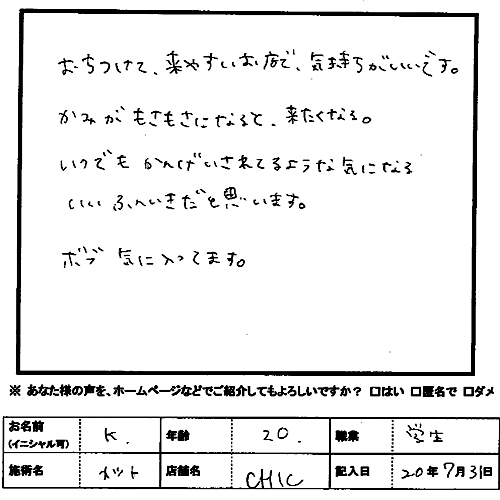 おちつけて、来やすいお店で、気持ちがいいです。
かみがもさもさになると、来たくなる。
いつでもかんげいされてるような気になる
いいふんいきだと思います。
ボブ 気に入ってます。
※ あなた様の声を、ホームページなどでご紹介してもよろしいですか？ □はい □匿名で □ダメ
お名前 (イニシャル可) K. 年齢 20. 職業 学生
施術名 カット 店舗名 CHIC 記入日 20年7月31日